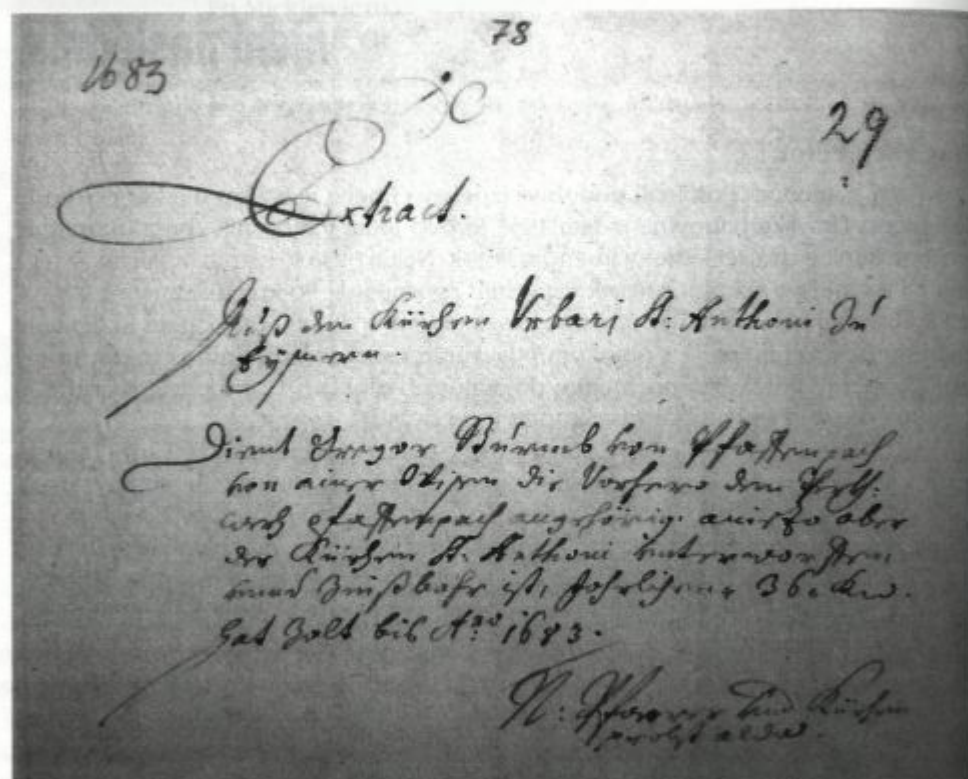 78
1683
29
Extract.
Auß dem Kürchen Urbari St: Anthoni Zu
Dient Gregor Sturmb von Pfaffenpach
von einer Wisen die Vorhero dem
pfaffenpach angehörig. aniezo aber
der Kürchen St: Anthoni unterworffen
unnd Zinßbahr ist, Jahrlichen 36. Kr.
hat Zalt bis Ao 1683.
N: Pfarrer und Kürchen
probst alda.